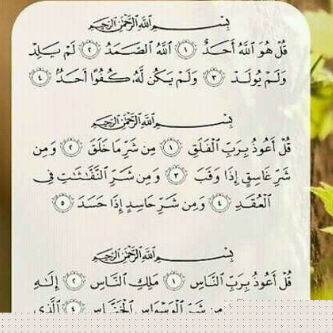 بِسْمِ اللَّهِ الرَّحْمَٰنِ الرَّحِيمِ
قُلْ هُوَ اللَّهُ أَحَدٌ ١ اللَّهُ الصَّمَدُ ٢ لَمْ يَلِدْ
وَلَمْ يُولَدْ ٣ وَلَمْ يَكُن لَّهُ كُفُوًا أَحَدٌ ٤
بِسْمِ اللَّهِ الرَّحْمَٰنِ الرَّحِيمِ
قُلْ أَعُوذُ بِرَبِّ الْفَلَقِ ١ مِن شَرِّ مَا خَلَقَ ٢ وَمِن
شَرِّ غَاسِقٍ إِذَا وَقَبَ ٣ وَمِن شَرِّ النَّفَّاثَاتِ فِي
الْعُقَدِ ٤ وَمِن شَرِّ حَاسِدٍ إِذَا حَسَدَ ٥
بِسْمِ اللَّهِ الرَّحْمَٰنِ الرَّحِيمِ
قُلْ أَعُوذُ بِرَبِّ النَّاسِ ١ مَلِكِ النَّاسِ ٢ إِلَٰهِ
مِن شَرِّ الْوَسْوَاسِ الْخَنَّاسِ ٤ الَّذِي